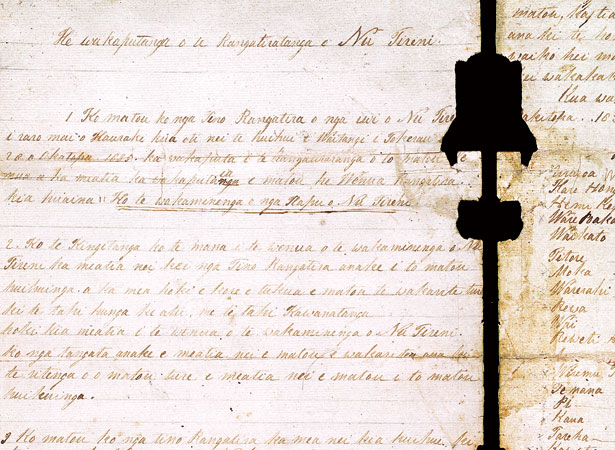 He wakaputanga o te Rangatiratanga o Nu Tireni.
1 Ko matou ko nga Tino Rangatira o nga iwi o Nu Tire
i raro mai o Haurake kua oti nei te huihui i Waitangi i Tokerau
ka wakaputa i te Rangatiratanga o to matou
a ka meatia ka wakaputaia e matou he Wenua Rangatira.
kia huaina "Ko te wakaminenga o nga Hapu o Nu Tireni
2. Ko te Kingitanga ko te mana i te wenua o te wakaminenga o Nu
Tireni ka meatia nei kei nga Tino Rangatira anake i to matou
huihuinga. a ka mea hoki e kore e tukua e matou te wakarite ture
ki te tahi hunga ke atu, me te tahi Kawanatanga
hoki kia meatia i te wenua o te wakaminenga o Nu Tireni.
ko nga tangata anake e meatia nei e matou e wakarite ana ki
te ritenga o o matou ture e meatia nei e matou i to matou
huihuinga.
3 Ko matou ko nga tino Rangatira ka mea nei kia huihui ki
matou,
ana ki te
kei
Kua
Hare
Hemi
Waikato
Titore
Moka
Warerahi
Rewa
Wai
Reweti
Temana
Pi
Kaua
Tareha